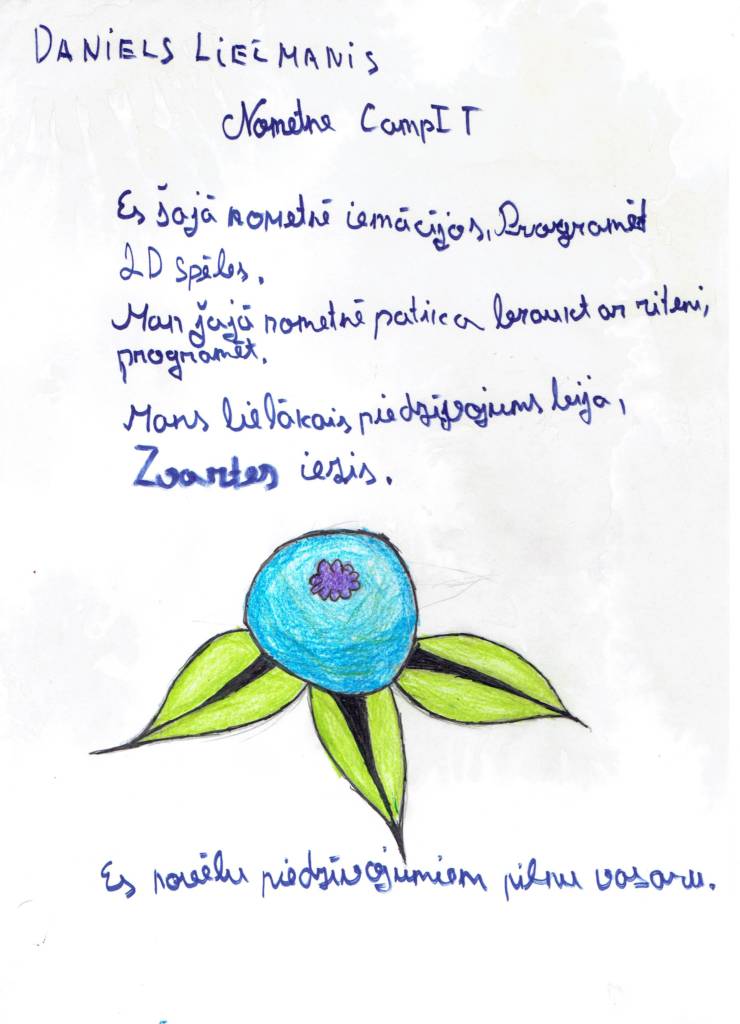 DANIELS LIEĪMANIS
Nometne CampIT
Es šajā nometnē iemācījos, Programēt
2D spēles.
Man šajā nometnē patika braukt ar riteni,
programēt.
Mans lielākais piedzīvojums bija,
Zvartes iezis.
Es novēlu piedzīvojumiem pilnu vasaru.